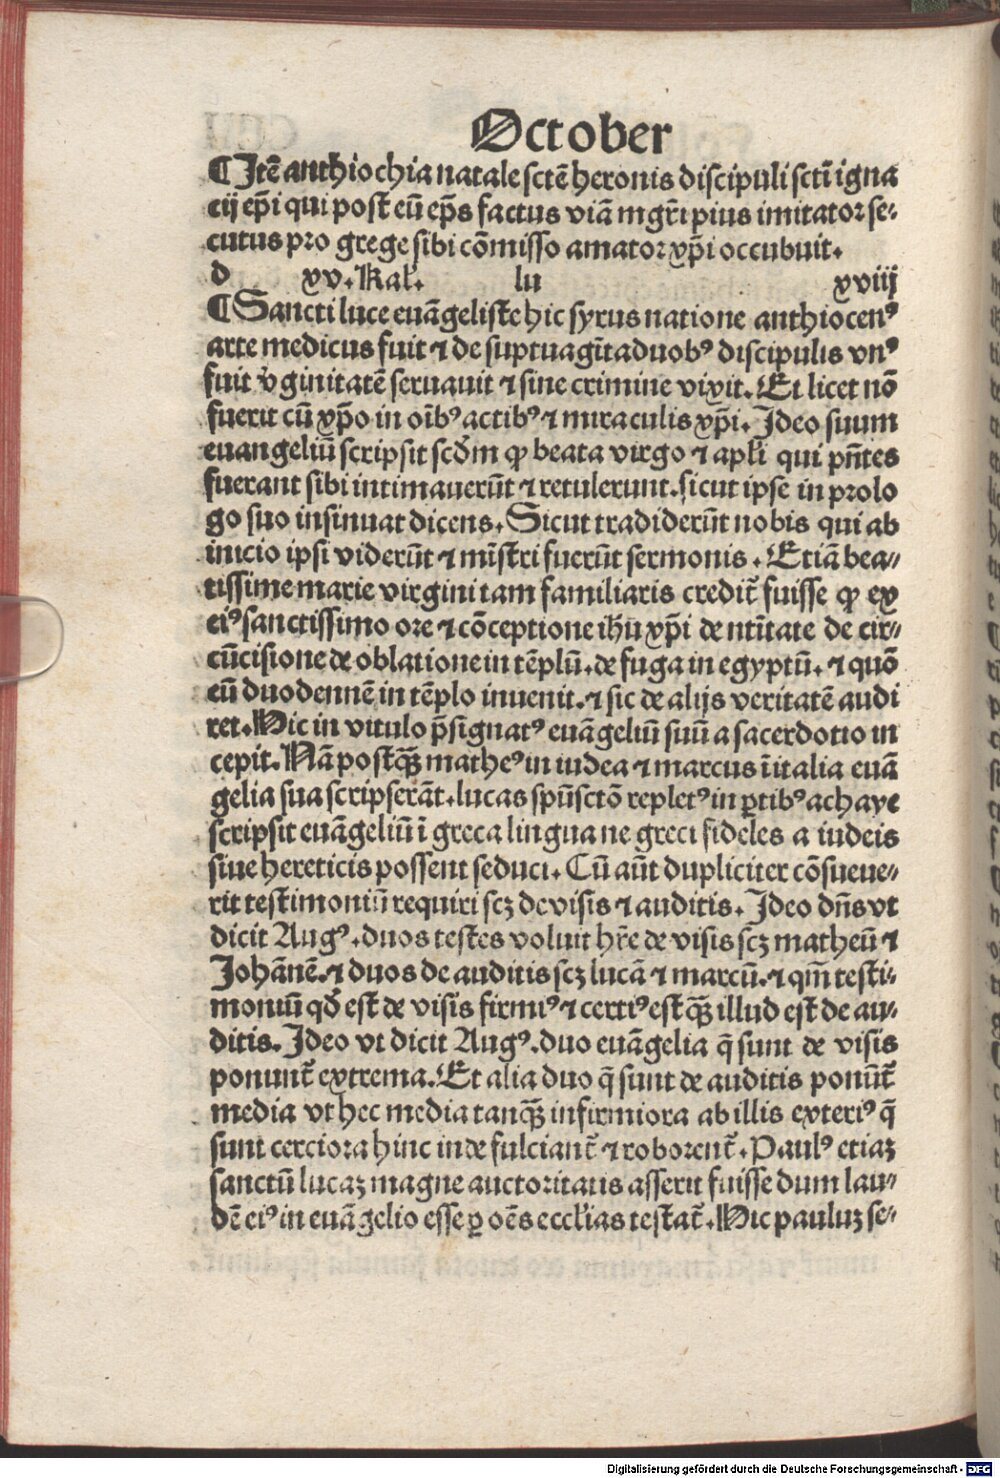 October
¶ Itē anthiochia natale sctē heronis discipuli scti igna
cij ep̄i qui post eū ep̄s factus viā mgr̄i pius imitator se⸗
cutus pro grege sibi cōmisso amator xp̄i occubuit.
d xv. Kal. lu xviij
¶ Sancti luce euāgeliste hic syrus natione anthiocenꝰ
arte medicus fuit ⁊ de suptuagīta duobꝰ discipulis vnꝰ
fuit v̄ginitatē seruauit ⁊ sine crimine vixit. Et licet nō
fuerit cū xp̄o in oībꝰ actibꝰ ⁊ miraculis xp̄i. Ideo suum
euangeliū scripsit scd̄m ꝙ beata virgo ⁊ apl̄i qui pn̄tes
fuerant sibi intimauerūt ⁊ retulerunt. sicut ipse in prolo
go suo insinuat dicens. Sicut tradiderūt nobis qui ab
inicio ipsi viderūt ⁊ mīstri fuerūt sermonis. Etiā bea⸗
tissime marie virgini tam familiaris credit̄ fuisse ꝙ ex
eiꝰ sanctissimo ore ⁊ cōceptione ihū xp̄i de ntītate de cir⸗
cūcisione de oblatione in tēplū. de fuga in egyptū. ⁊ quō
eū duodennē in tēplo inuenit. ⁊ sic de alijs veritatē audi
ret. Hic in vitulo p̄signatꝰ euāgeliū suū a sacerdotio in
cepit. Nā postq̄ꝫ matheꝰ in iudea ⁊ marcus ī italia euā
gelia sua scripserāt. lucas spūsctō repletꝰ in ꝑtibꝰ achaye
scripsit euāgeliū ī greca lingua ne greci fideles a iudeis
siue hereticis possent seduci. Cū aūt dupliciter cōsueue⸗
rit testimoniū requiri scꝫ de visis ⁊ auditis. Ideo dn̄s vt
dicit Augꝰ. duos testes voluit hr̄e de visis scꝫ matheū ⁊
Johānē. ⁊ duos de auditis scꝫ lucā ⁊ marcū. ⁊ qm̄ testi⸗
moniū qd̄ est de visis firmiꝰ ⁊ certiꝰ est q̄ꝫ illud est de au⸗
ditis. Ideo vt dicit Augꝰ. duo euāgelia q̄ sunt de visis
ponunt̄ extrema. Et alia duo q̄ sunt de auditis ponūt̄
media vt hec media tanq̄ꝫ infirmiora ab illis exteriꝰ q̄
sunt cerciora hinc inde fulciant̄ ⁊ roborent̄. Paulꝰ etiaꝫ
sanctū lucaꝫ magne auctoritatis asserit fuisse dum lau⸗
dē eiꝰ in euāgelio esse ꝑ oēs eccl̄ias testat̄. Hic pauluꝫ se⸗
Digitalisierung gefördert durch die Deutsche Forschungsgemeinschaft - DFG